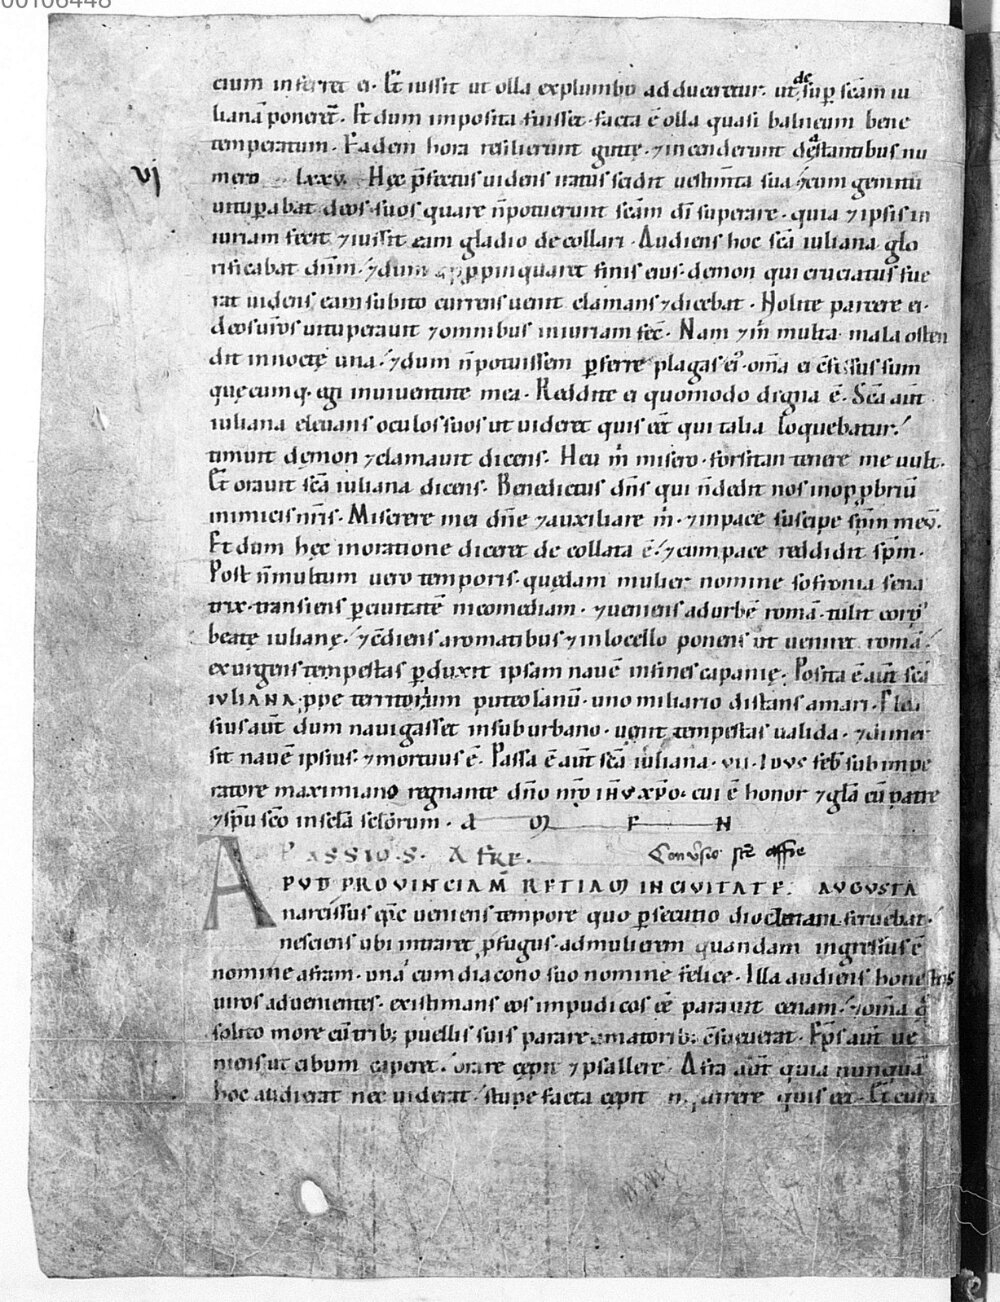 00106448
cium inferret ei. Et iussit ut olla explumbo adduceretur. ut de sup scām iu
lianā poneret̄. Et dum imposita fuisset. facta ē olla quasi balneum bene
temperatum. Eadem hora resilierunt guttę. ⁊incenderunt deastantibus nu
vj
mero lxxv. Hęc p̄fectus uidens iratus scidit uestim̄ta sua. ⁊cum gemitu
uitup̱abat deos suos quare n̄potuerunt scām dī superare. quia ⁊ipsis in
iuriam fecit ⁊iussit eam gladio decollari. Audiens hoc scā iuliana glo
rificabat dn̄m. ⁊dum app̱pinquaret finis eius. demon qui cruciatus fue
rat uidens eam subito currens uenit clamans ⁊dicebat. Nolite parcere ei.
deos ur̄os uituperauit ⁊omnibus iniuriam fec̄. Nam ⁊m̄ multa mala osten
dit in noctę una. ⁊dum n̄potuissem p̱ferre plagas ei᾿. om̄a ei cōfessus sum
quęcumq. egi iniuuentute mea. Reddite ei quomodo digna ē. Scā aūt
iuliana eleuans oculos suos ut uideret quis eēt qui talia loquebatur.
timuit dęmon ⁊clamauit dicens. Heu m̄ misero. forsitan tenere me uult.
Et orauit scā iuliana dicens. Benedictus dn̄s qui n̄dedit nos inopp̱briū
inimicis nr̄is. Miserere mei dn̄e ⁊auxiliare m̄. ⁊inpace suscipe sp̄m meū.
Et dum hęc inoratione diceret decollata ē. ⁊cum pace reddidit sp̄m.
Post n̄multum uero temporis. quędam mulier nomine sofronia sena
trix. transiens p̱ciuitatē nicomediam. ⁊ueniens adurbē romā. tulit corp᾿
beatę iulianę. ⁊cōdiens aromatibus ⁊inlocello ponens ut ueniret romā.
exurgens tempestas p̱duxit ipsam nauē infines capanię. Posita ē aūt scā
IVLIANA. ppe territorium puteolanū. uno miliario distans amari. Eleu
sius aūt dum nauigasset insuburbano. uenit tempestas ualida. ⁊dimer
sit nauē ipsius. ⁊mortuus ē. Passa ē aūt scā iuliana. vii. Idvs feb̄ sub impe
ratore maximiano regnante dn̄o nr̄o ih̄v xp̄o. cui ē honor ⁊gl̄a cū patre
⁊sp̄u sc̄o insecl̄a secl̄orum. A M E N
PASSIO. S. AFRE. Conv̄sio sc̄e affre
APVD PROVINCIAM RETIAM IN CIVITATE. AVGVSTA
narcissus ep̄c ueniens tempore quo p̱secutio diocletiani seruebat.
nesciens ubi intraret p̱fugus. admulierem quandam ingressus ē
nomine afram. una cum diacono suo nomine felice. Illa audiens honestos
uiros aduenientes. existimans eos impudicos eē parauit cenam. ⁊om̄a q̄
solito more cū trib; puellis suis parare amatorib; cōsueuerat. Ep̄s aūt ue
niens ut cibum caperet. orare cepit ⁊psallere. Afra aūt quia nunquā
hoc audierat nec uiderat. stupefacta cepit quis eēt. Et cum